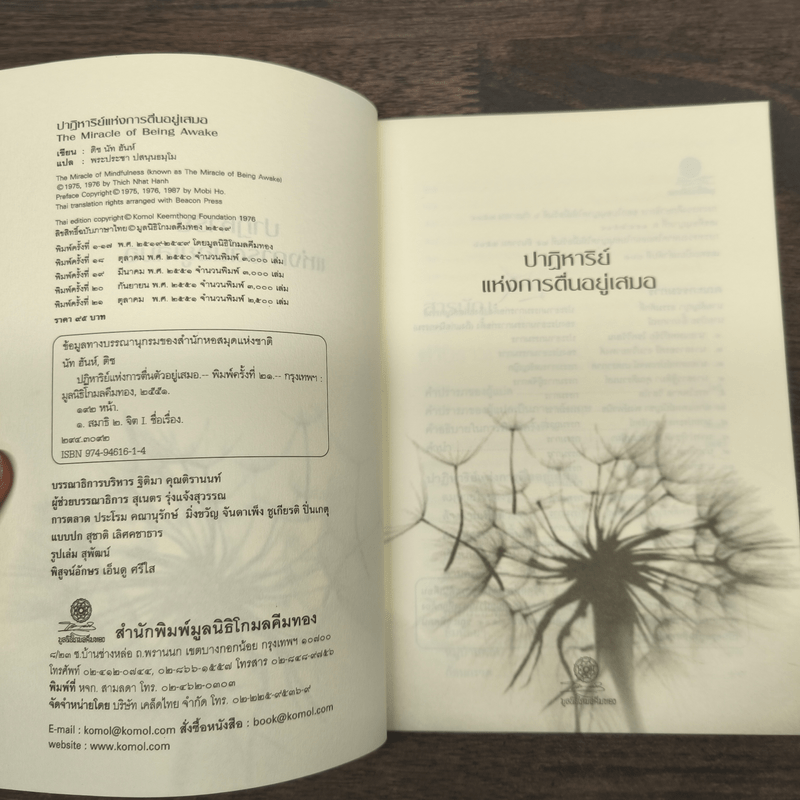 ปาฏิหาริย์แห่งการตื่นอยู่เสมอ
The Miracle of Being Awake
เขียน : ติช นัท ฮันห์
แปล : พระประชา ปสนฺนธมฺโม
The Miracle of Mindfulness (known as The Miracle of Being Awake)
©1975, 1976 by Thich Nhat Hanh
Preface Copyright©1975, 1976, 1987 by Mobi Ho.
Thai translation rights arranged with Beacon Press
Thai edition copyright©Komol Keemthong Foundation 1976
ลิขสิทธิ์ฉบับภาษาไทย©มูลนิธิโกมลคีมทอง ๒๕๑๙
พิมพ์ครั้งที่ ๑-๑๗ พ.ศ. ๒๕๑๙-๒๕๔๙ โดยมูลนิธิโกมลคีมทอง
พิมพ์ครั้งที่ ๑๘ ตุลาคม พ.ศ. ๒๕๕๐ จำนวนพิมพ์ ๓,๐๐๐ เล่ม
พิมพ์ครั้งที่ ๑๙ มีนาคม พ.ศ. ๒๕๕๑ จำนวนพิมพ์ ๓,๐๐๐ เล่ม
พิมพ์ครั้งที่ ๒๐ กันยายน พ.ศ. ๒๕๕๑ จำนวนพิมพ์ ๓,๐๐๐ เล่ม
พิมพ์ครั้งที่ ๒๑ ตุลาคม พ.ศ. ๒๕๕๑ จำนวนพิมพ์ ๒,๕๐๐ เล่ม
ราคา ๙๕ บาท
ข้อมูลทางบรรณานุกรมของสำนักหอสมุดแห่งชาติ
นัท ฮันห์, ติช
ปาฏิหาริย์แห่งการตื่นตัวอยู่เสมอ.-- พิมพ์ครั้งที่ ๒๑.-- กรุงเทพฯ :
มูลนิธิโกมลคีมทอง, ๒๕๕๑.
๑๙๒ หน้า.
๑. สมาธิ ๒. จิต I. ชื่อเรื่อง.
๒๙๔.๓๐๙๒
ISBN 974-94616-1-4
บรรณาธิการบริหาร ฐิติมา คุณติรานนท์
ผู้ช่วยบรรณาธิการ สุเนตร รุ่งแจ้งสุวรรณ
การตลาด ประโรม คณานุรักษ์ มิ่งขวัญ จันดาเพ็ง ชูเกียรติ ปิ่นเกตุ
แบบปก สุชาติ เลิศคชาธาร
รูปเล่ม สุพัฒน์
พิสูจน์อักษร เอ็นดู ศรีไส
มูลนิธิโกมลคีมทอง
สำนักพิมพ์มูลนิธิโกมลคีมทอง
๘/๒๓ ซ.บ้านช่างหล่อ ถ.พรานนก เขตบางกอกน้อย กรุงเทพฯ ๑๐๗๐๐
โทรศัพท์ ๐๒-๔๑๒-๐๗๔๔, ๐๒-๘๖๖-๑๕๕๗ โทรสาร ๐๒-๘๔๘-๙๗๕๖
พิมพ์ที่ หจก. สามลดา โทร. ๐๒-๔๖๒-๐๓๐๓
จัดจำหน่ายโดย บริษัท เคล็ดไทย จำกัด โทร. ๐๒-๒๒๕-๙๕๓๖-๙
E-mail : komol@komol.com สั่งซื้อหนังสือ : book@komol.com
website : www.komol.com
ปาฏิหาริย์
แห่งการตื่นอยู่เสมอ
มูลนิธิโกมลคีมทอง